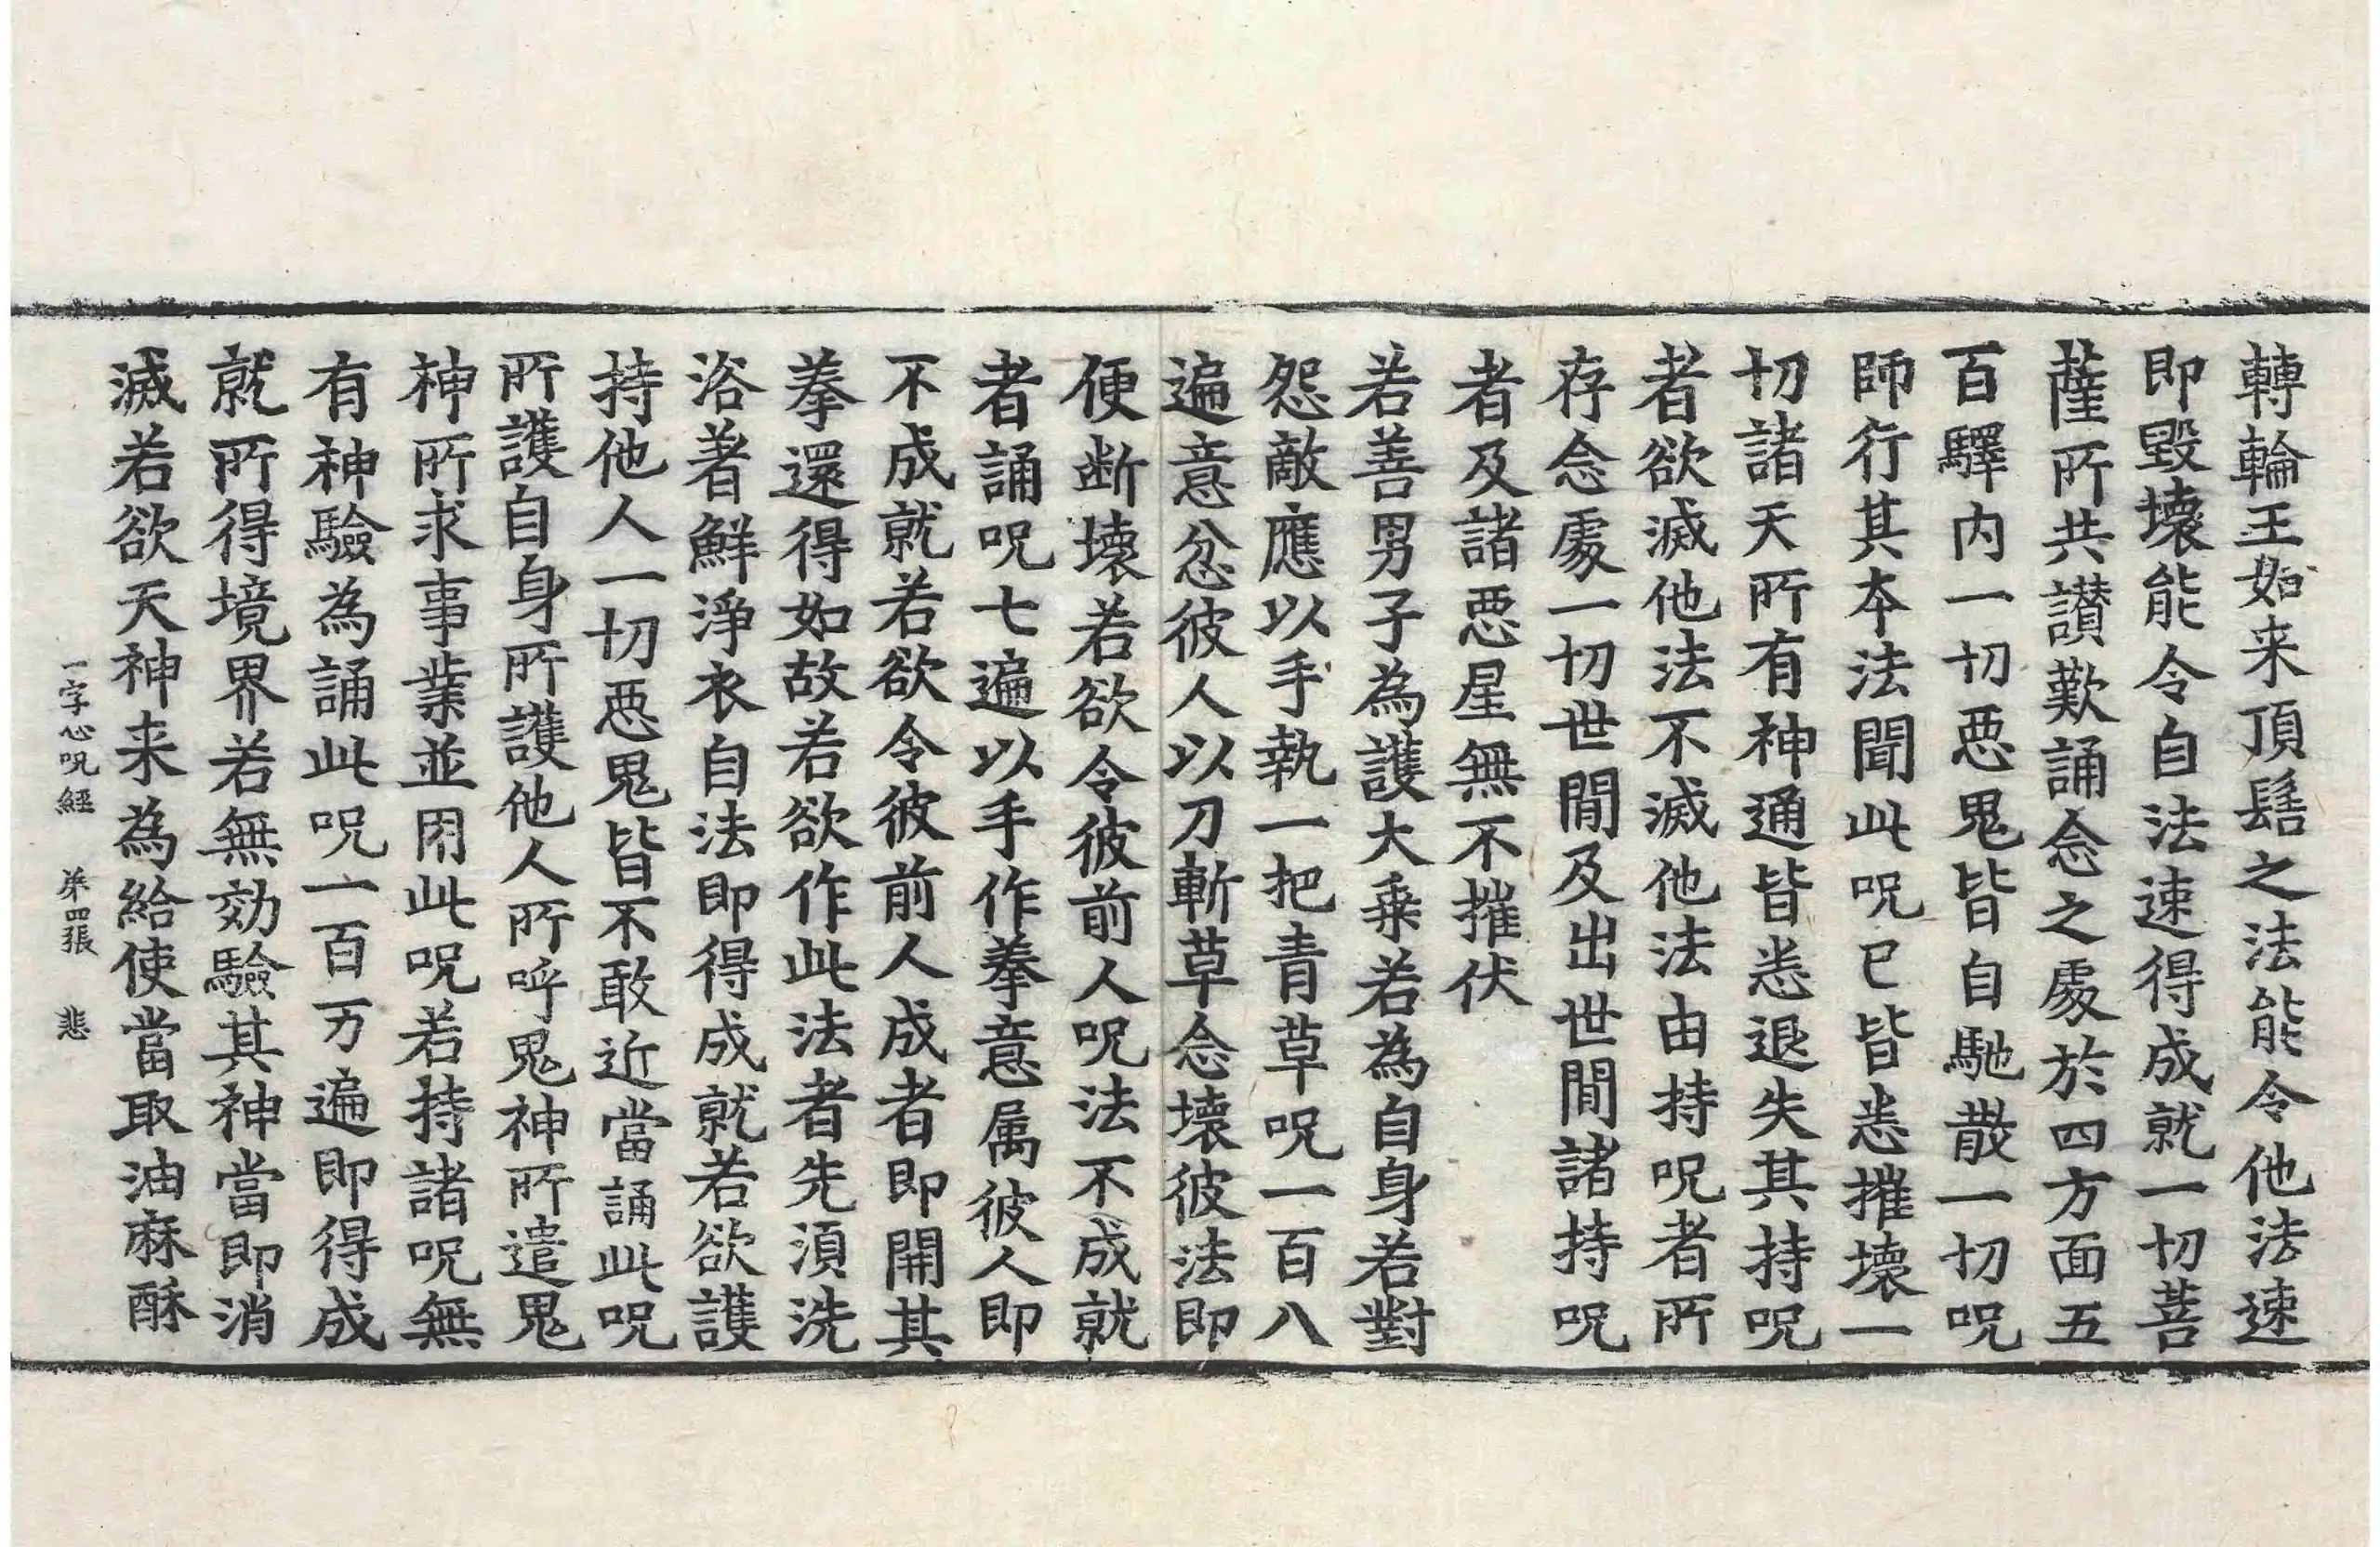 轉輪王如来頂髻之法能令他法速
即毀壞能令自法速得成就一切菩
薩所共讃歎誦念之處於四方面五
百驛内一切惡鬼皆自馳散一切呪
師行其本法聞此呪已皆悉摧壞一
切諸天所有神通皆悉退失其持呪
者欲滅他法不滅他法由持呪者所
存念處一切世間及出世間諸持呪
者及諸惡星無不摧伏
若善男子為護大乗若為自身若對
怨敵應以手執一把青草呪一百八
遍意忿彼人以刀斬草念壞彼法即
便断壞若欲令彼前人呪法不成就
者誦呪七遍以手作拳意属彼人即
不成就若欲令彼前人成者即開其
拳還得如故若欲作此法者先湏洗
浴著鮮淨衣自法即得成就若欲護
持他人一切惡鬼皆不敢近當誦此呪
所護自身所護他人所呼鬼神所遣鬼
神所求事業並用此呪若持諸呪無
有神驗為誦此呪一百万遍即得成
就所得境界若無効驗其神當即消
滅若欲天神来為給使當取油麻酥
一字心呪經 第四張 悲